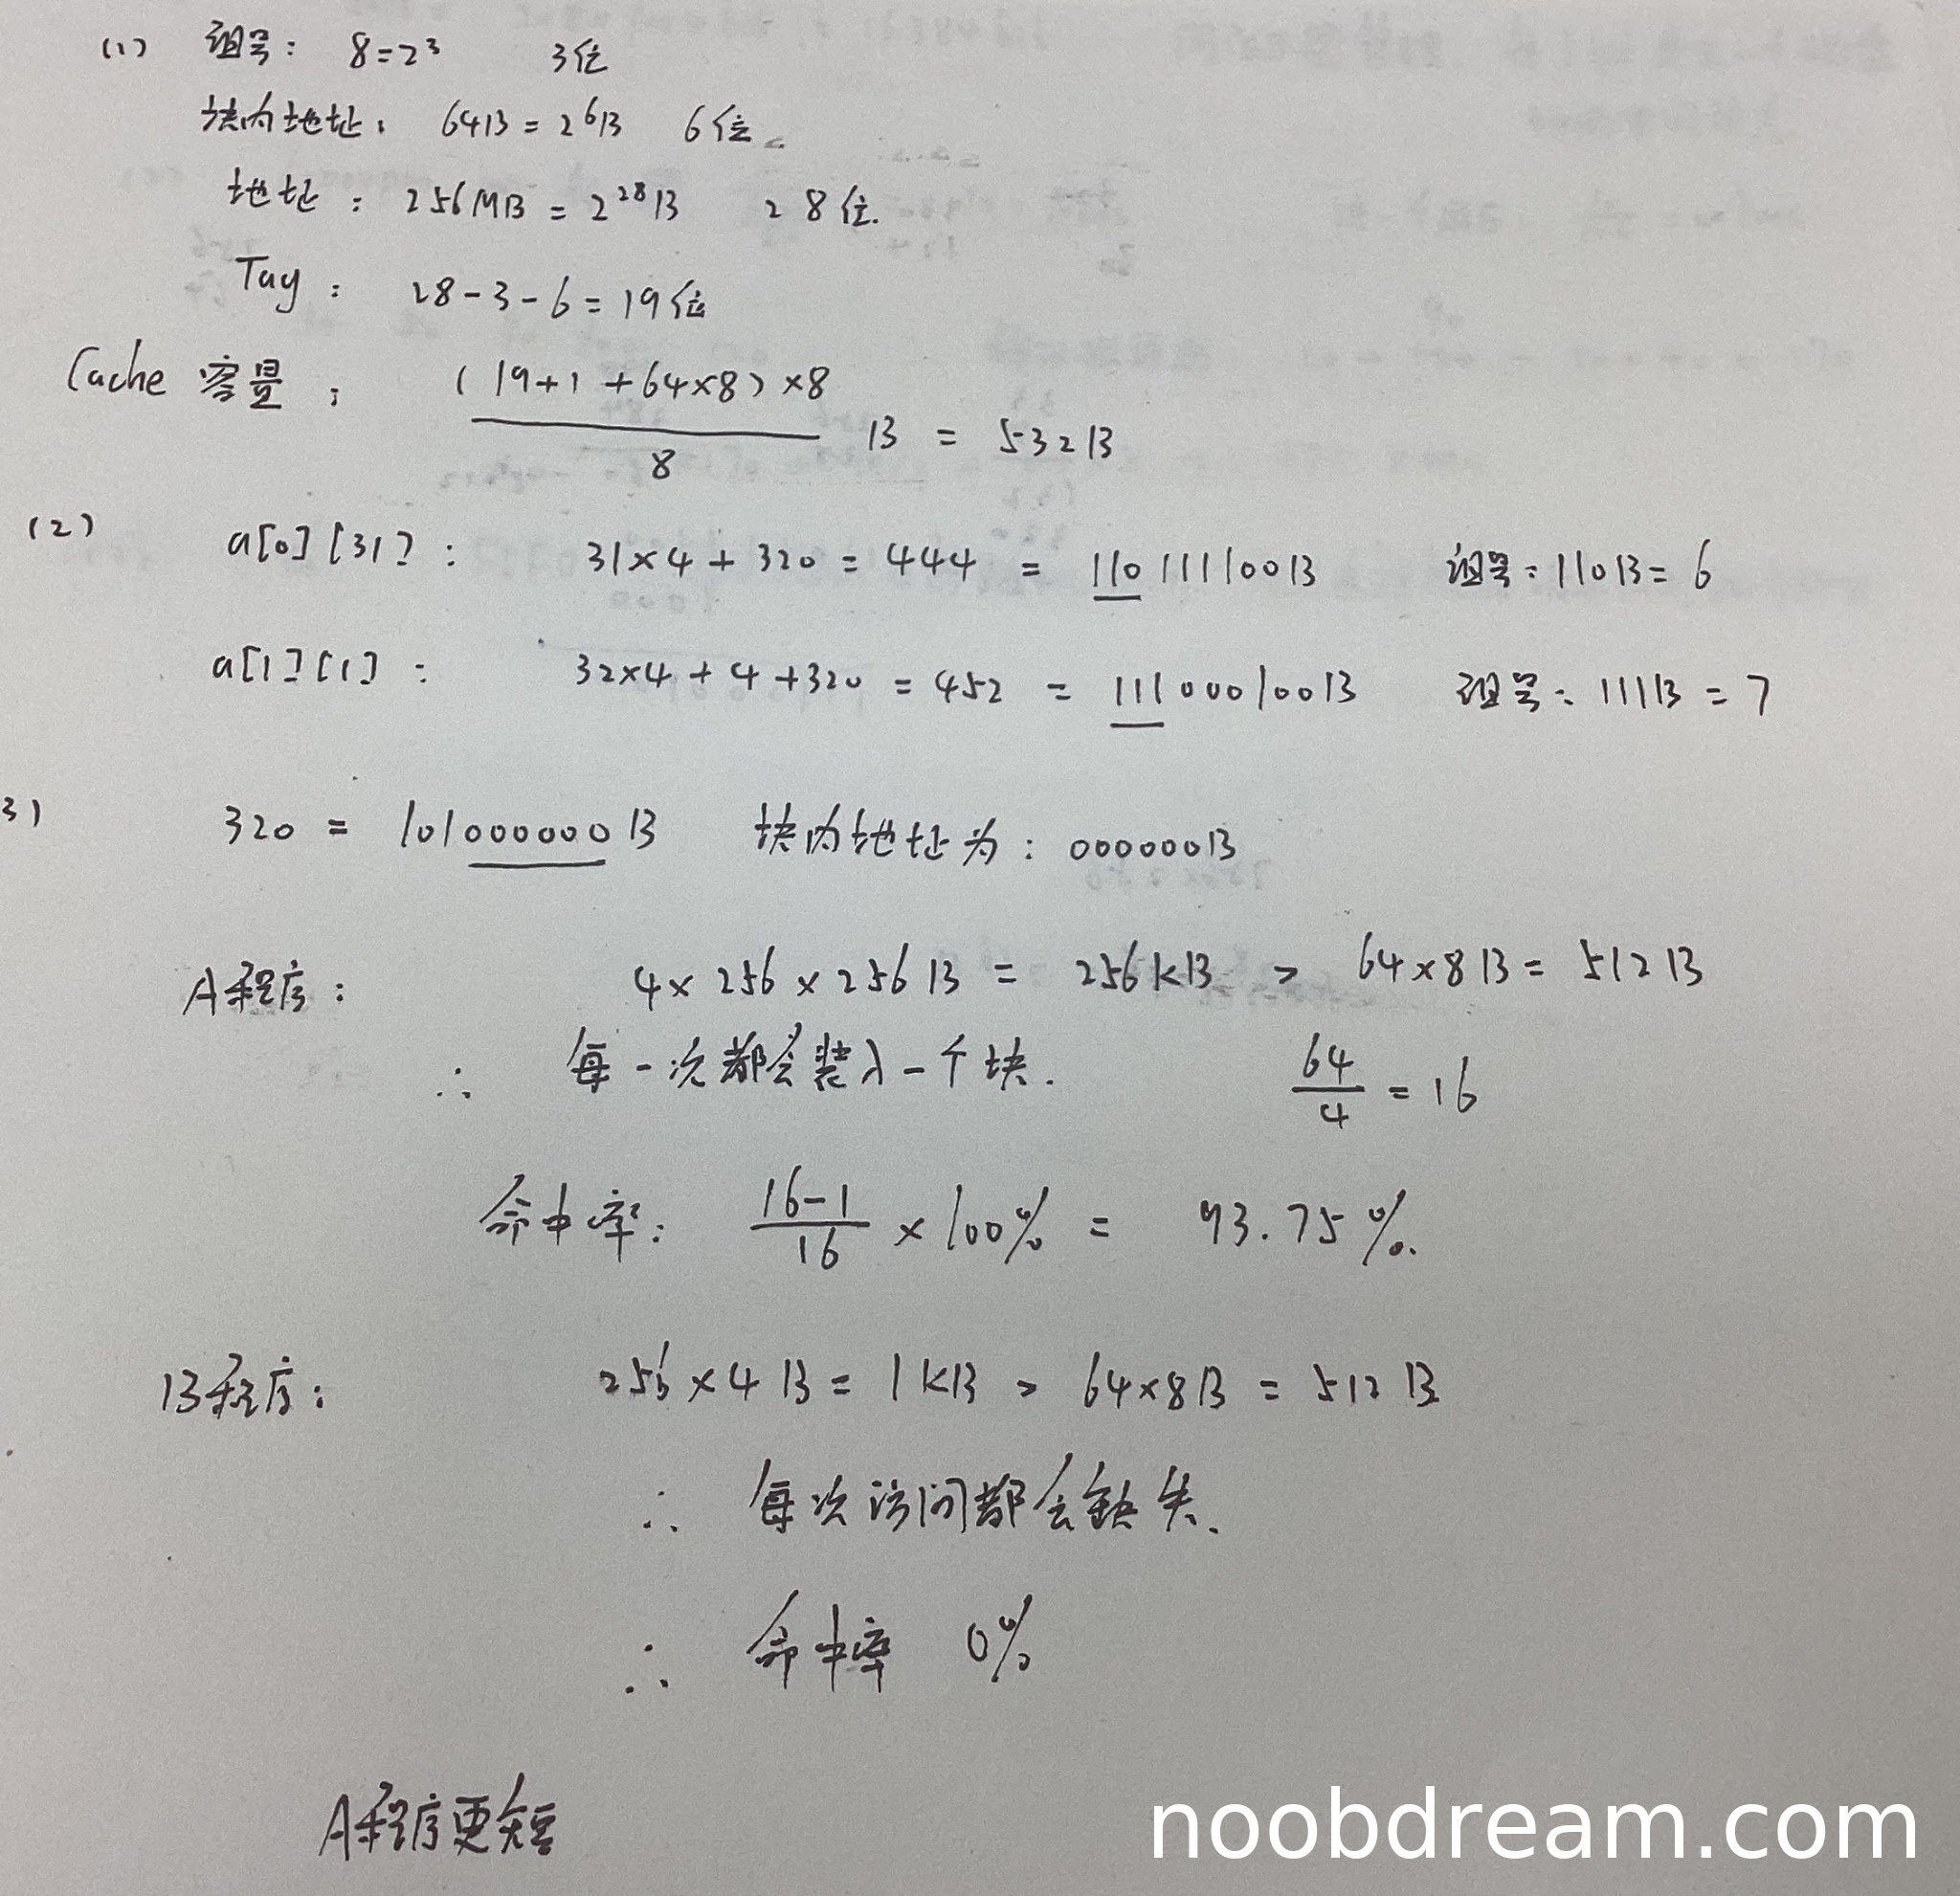 (1) 组号: 8=2³ 3位
块内地址: 64B = 2⁶B 6位.
地址: 256MB = 2²⁸B 28位.
Tag: 28-3-6=19位
Cache 容量: (19+1+64×8)×8 / 8 B = 532B
(2) a[0][31]: 31×4+320=444 = 110111100B 组号: 110B=6
a[1][1]: 32×4+4+320=452 = 111000100B 组号: 111B=7
3) 320 = 101000000B 块内地址为: 000000B
A程序: 4×256×256B = 256KB > 64×8B=512B
∴ 每一次都会装入一个块. 64/4=16
命中率: 16-1/16 ×100% = 93.75%.
B程序: 256×4B=1KB > 64×8B=512B
∴ 每次访问都会缺失.
∴ 命中率 0%
A程序更短
noobdream.com